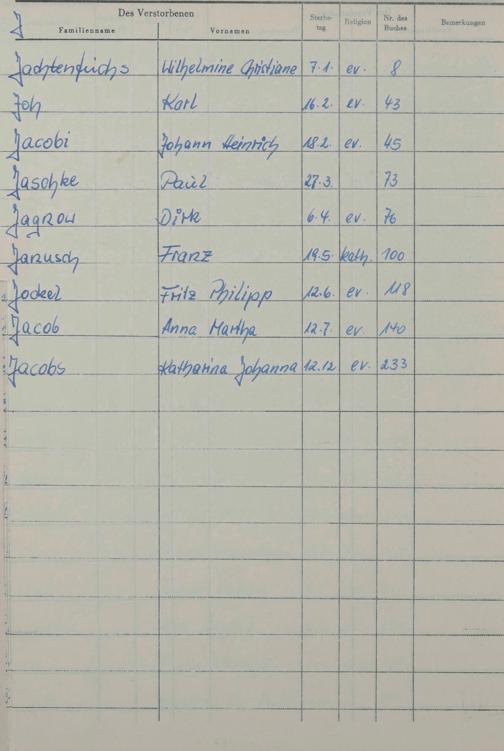 J
Des Verstorbenen
Familienname Vornamen Sterbe-tag Religion Nr. des Buches Bemerkungen
Jachtenfuchs Wilhelmine Christiane 7.1. ev. 8
Joh Karl 16.2. ev. 43
Jacobi Johann Heinrich 18.2. ev. 45
Jaschke Paul 27.3. 73
Jagrow Dirk 6.4. ev. 76
Janusch Franz 19.5. kath. 100
Jockel Fritz Philipp 12.6. ev. 118
Jacob Anna Martha 12.7. ev. 140
Jacobs Katharina Johanna 12.12. ev. 233